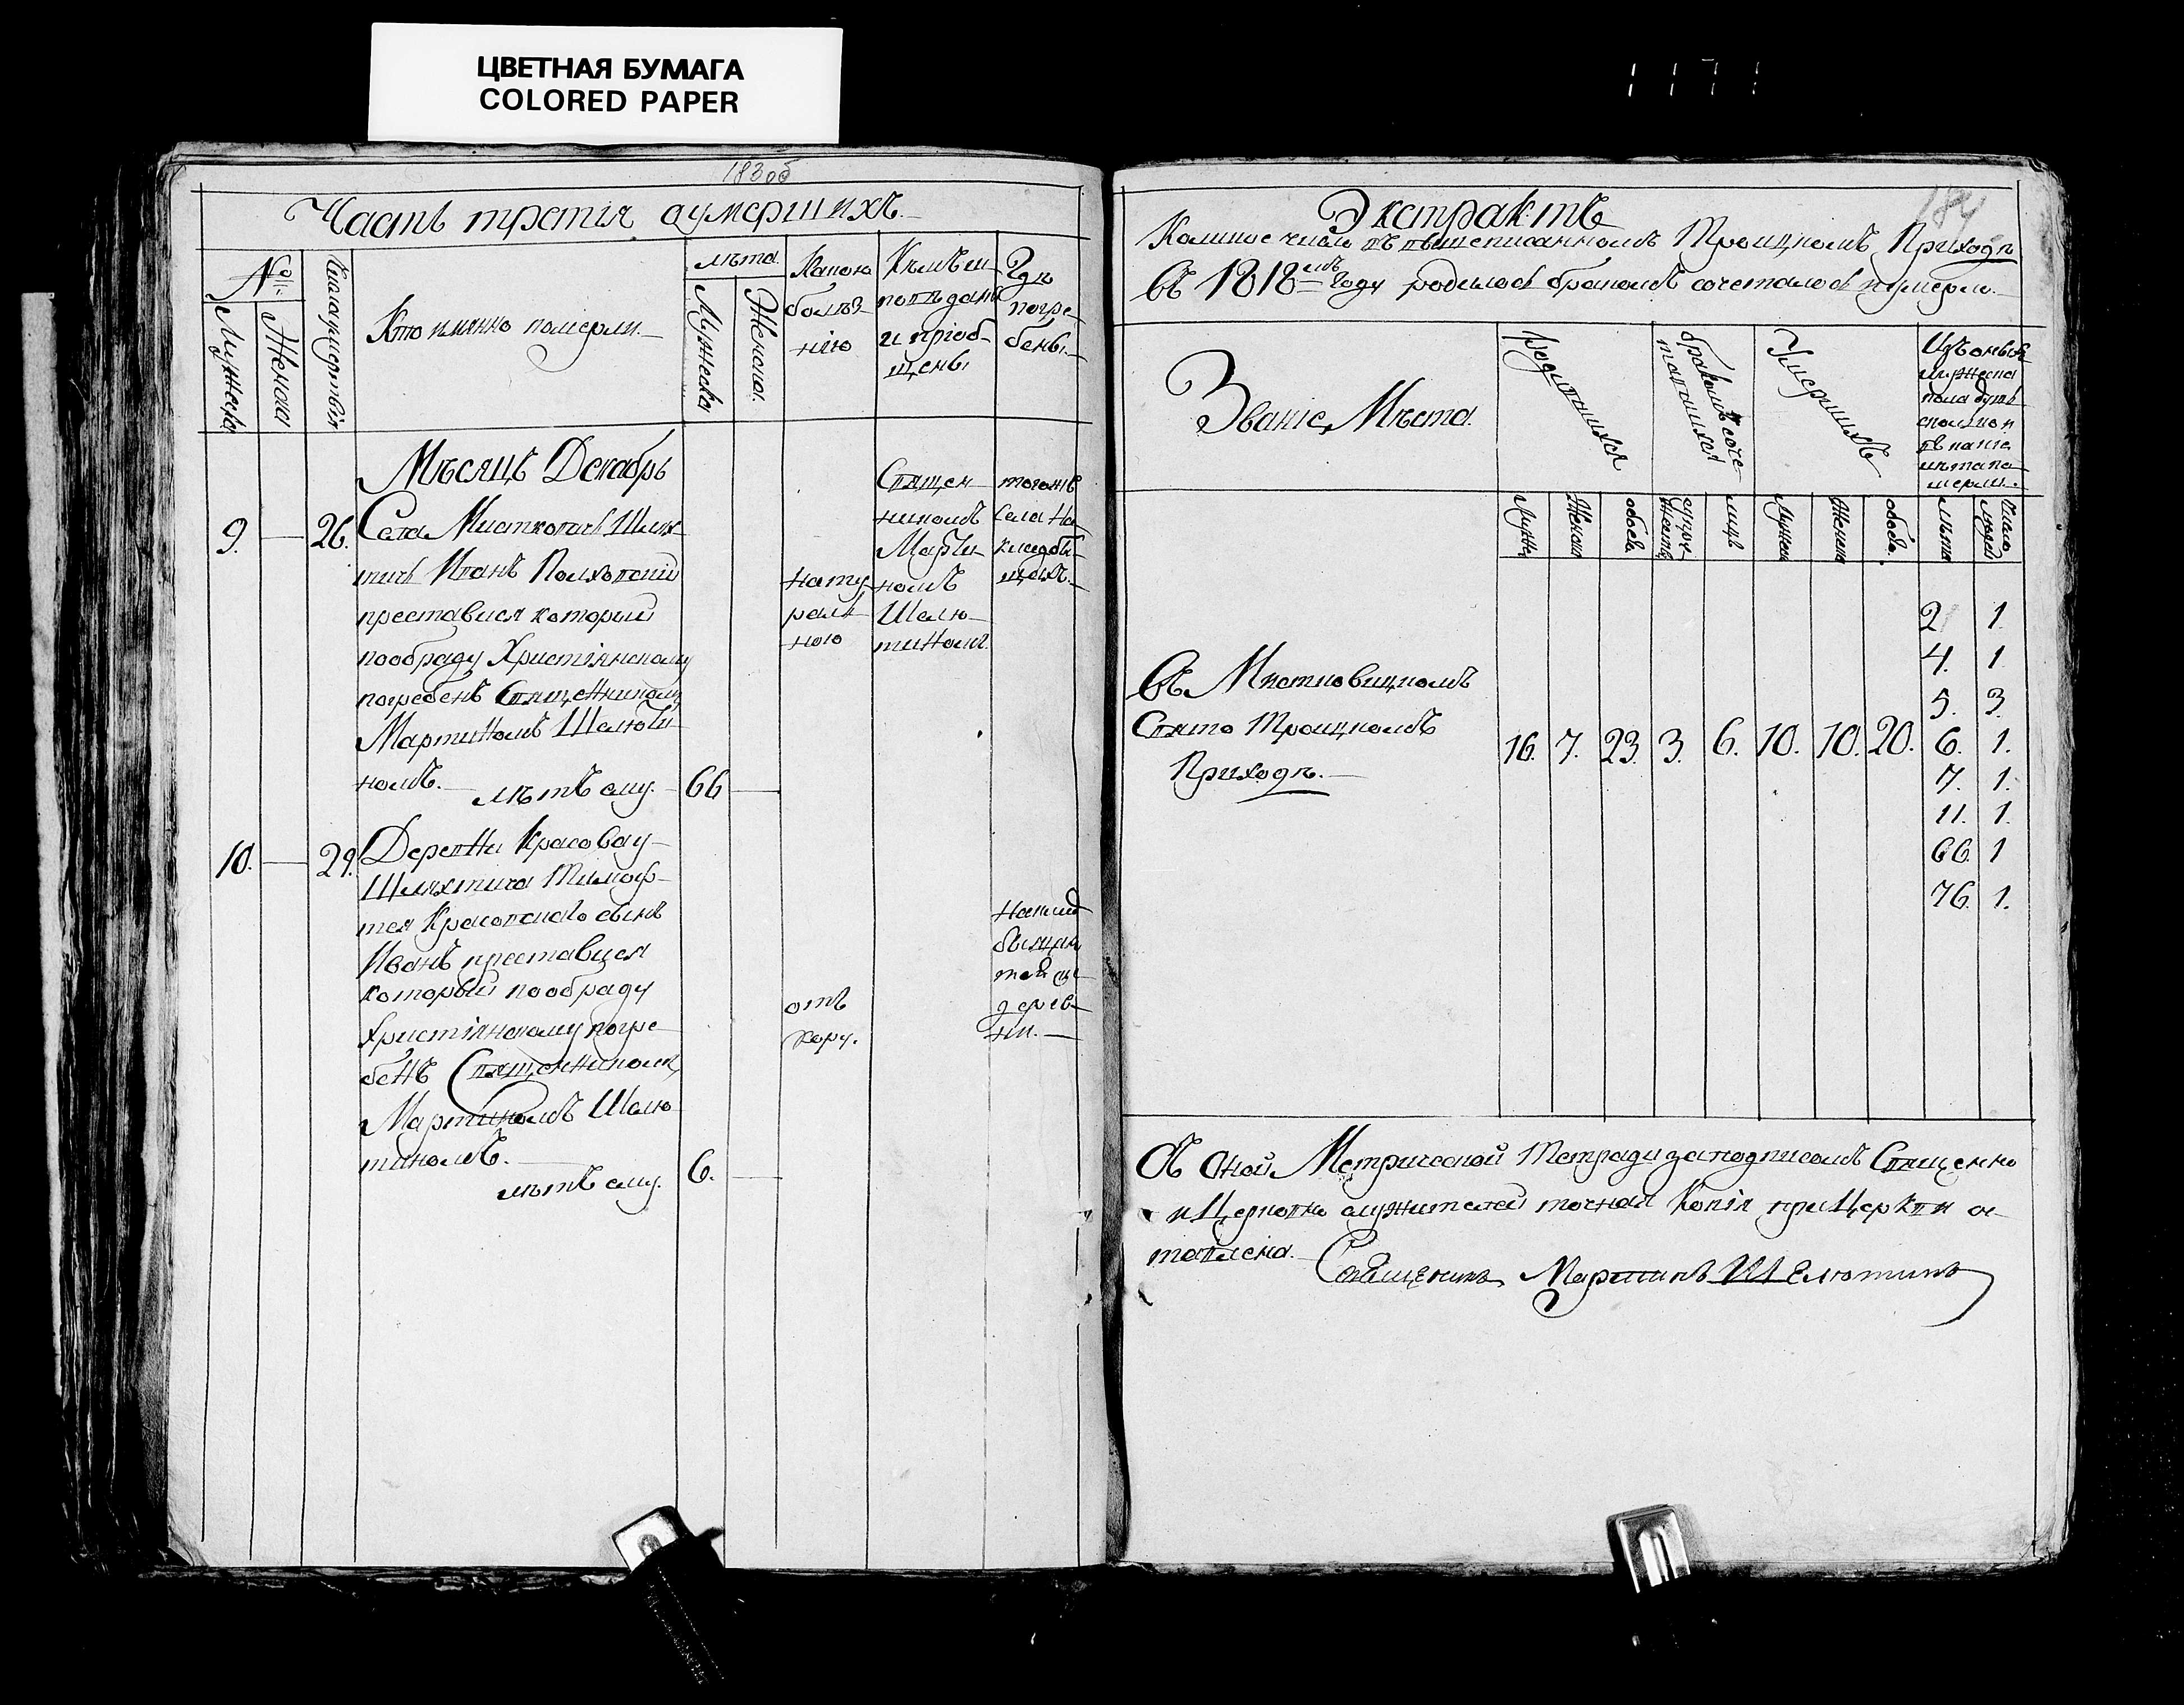 ЦВЕТНАЯ БУМАГА
COLORED PAPER
1171
183об
Часть третія оумершихъ.
№
Мужеска
Женска
Число мертвія
Кто имянно помѣрли.
лѣта
Мужеска
Женска.
Какою
болѣз-
нію
Кѣмъ
исповѣданы
и пріоб-
щены
Гдѣ
погре-
бены.
Мѣсяцъ Декабрь
9. 26. Села Шлях-
тичь Иванъ
преставися который
пообряду Христіянскому
погребенъ Священникомъ
Мартиномъ Шелюти-
номъ. лѣтъ ему. 66
нату
раль
ною
Священ-
никомъ
Марти-
номъ
Шелю-
тиномъ.
тогожъ
села На
кладби-
щахъ.
10. 29. Деревни Красовки
Шляхтича Тимоф-
тея Красовскаго сынъ
Иванъ преставися
который пообряду
Христіянскому погре
бенъ Священникомъ
Мартиномъ Шелю
тиномъ.
лѣтъ ему. 6.
отъ
кору.
На клад
бищахъ
той же
дерев-
ни.
184
Экстрактъ
Коликое число въ вышеписанномъ Троицкомъ Приходѣ
въ 1818мъ Году родилось бракомъ сочеталось и умерло.
Званіе Мѣста.
родившихся
бракомъ соче-
тавшихся
Умершихъ
Изъ оныхъ
мужеска
пола душъ
сколико и
въ какие
лѣта по-
мерли.
Мужеска
Женска
обоего
супру-
жествъ
лицъ
Мужеска
Женска
обоего.
лѣта
Число людей
Въ Мястковицкомъ
Свято Троицкомъ
Приходѣ.
16. 7. 23. 3. 6. 10. 10. 20.
2 1.
4. 1
5. 3.
6. 1.
7. 1.
11. 1.
66. 1
76. 1.
Съ Оной Метрической Тетради за подписомъ Священно
и Церковно служителей точная Копія при Церкви ос-
тавлена.
Священникъ Мартинъ Шелютинъ